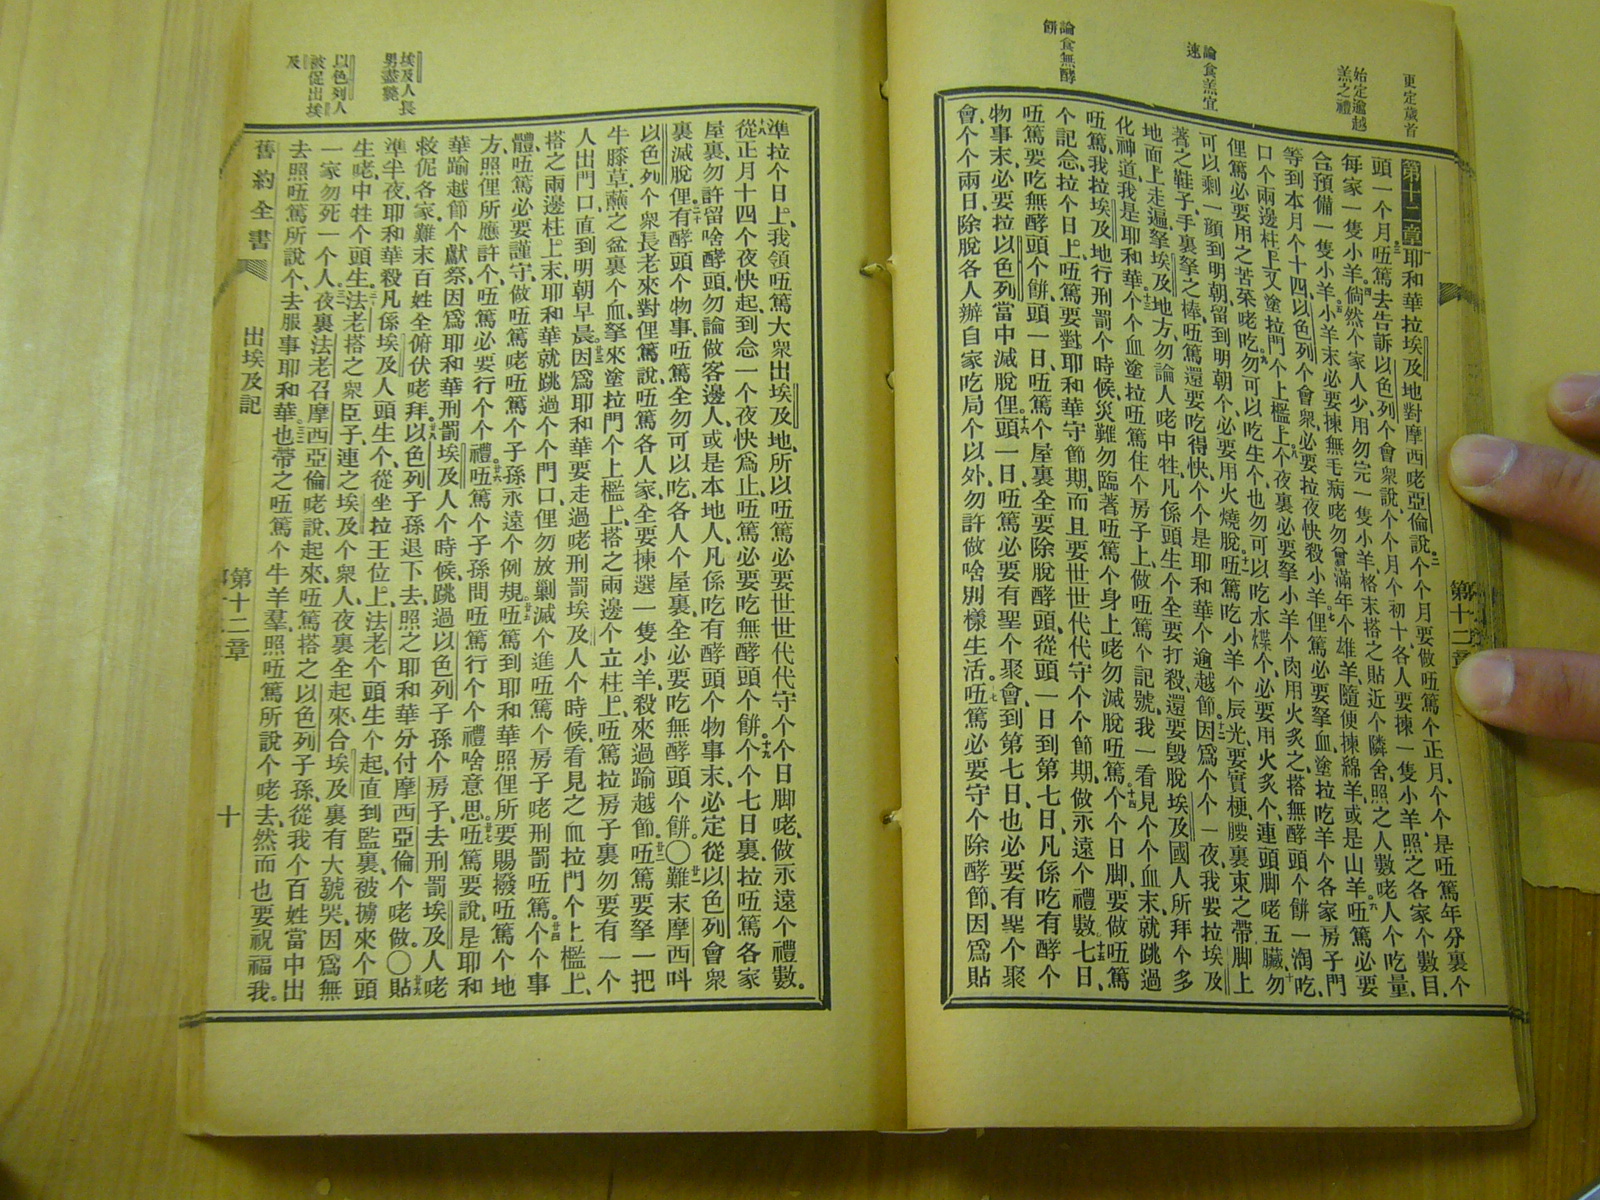 更定歲首
始定逾越
羔之禮
論食羔宜
速
論食無酵
餅
第十二章耶和華拉埃及地對摩西咾亞倫說二个个月要做唔篤个正月个个是唔篤年分裏个
頭一个月三唔篤去告訴以色列个會衆說个个月个初十各人要揀一隻小羊照之各家个數目
每家一隻小羊四倘然个家人少用勿完一隻小羊格末搭之貼近个隣舍照之人數咾人个吃量
合預備一隻小羊五小羊末必要揀無毛病咾勿曾滿年个雄羊隨便揀綿羊或是山羊六唔篤必要
等到本月个十四以色列个會衆必要拉夜快殺小羊七俚篤必要拏血塗拉吃羊个各家房子門
口个兩邊柱上又塗拉門个上檻上八个夜裏必要拏小羊个肉用火炙之搭無酵頭个餅一淘吃
俚篤必要用之苦菜咾吃九勿可以吃生个也勿可以吃水煠个必要用火炙个連頭脚咾五臟十勿
可以剩一顏到明朝留到明朝个必要用火燒脫十一唔篤吃小羊个辰光要實梗腰裏束之帶脚上
著之鞋子手裏拏之棒唔篤還要吃得快个个是耶和華个逾越節十二因爲个个一夜我要拉埃及
地面上走遍拏埃及地方勿論人咾中牲凡係頭生个全要打殺還要毀脫埃及國人所拜个多
化神道我是耶和華十三个个血塗拉唔篤住个房子上做唔篤个記號我一看見个个血末就跳過
唔篤我拉埃及地行刑罰个時候災難勿臨著唔篤个身上咾勿滅脫唔篤十四个个日脚要做唔篤
个記念拉个日上唔篤要對耶和華守節期而且要世世代代守个个節期做永遠个禮數十五七日
唔篤要吃無酵頭个餅頭一日唔篤个屋裏全要除脫酵頭從頭一日到第七日凡係吃有酵个
物事末必要拉以色列當中滅脫俚十六頭一日唔篤必要有聖个聚會到第七日也必要有聖个聚
會个个兩日除脫各人辦自家吃局个以外勿許做啥別樣生活十七唔篤必要守个除酵節因爲貼
第十二章
埃及人長
男盡斃
以色列人
被促出埃
及
準拉个日上我領唔篤大衆出埃及地所以唔篤必要世世代代守个个日脚咾做永遠个禮數
十八從正月十四个夜快起到念一个夜快爲止唔篤必要吃無酵頭个餅十九个个七日裏拉唔篤各家
屋裏勿許留啥酵頭勿論做客邊人或是本地人凡係吃有酵頭个物事末必定從以色列會衆
裏滅脫俚二十有酵頭个物事唔篤全勿可以吃各人个屋裏全必要吃無酵頭个餅〇廿一難末摩西呌
以色列个衆長老來對俚篤說唔篤各人家全要揀選一隻小羊殺來過踰越節廿二唔篤要拏一把
牛膝草蘸之盆裏个血拏來塗拉門个上檻上搭之兩邊个立柱上唔篤拉房子裏勿要有一个
人出門口直到明朝早晨廿三因爲耶和華要走過咾刑罰埃及人个時候看見之血拉門个上檻上
搭之兩邊柱上末耶和華就跳過个个門口俚勿放剿滅个進唔篤个房子咾刑罰唔篤廿四个个事
體唔篤必要謹守做唔篤咾唔篤个子孫永遠个例規廿五唔篤到耶和華照俚所要賜撥唔篤个地
方照俚所應許个唔篤必要行个个禮廿六唔篤个子孫問唔篤行个个禮啥意思廿七唔篤要說是耶和
華踰越節个獻祭因爲耶和華刑罰埃及人个時候跳過以色列子孫个房子去刑罰埃及人咾
救伲各家難末百姓全俯伏咾拜廿八以色列子孫退下去照之耶和華分付摩西亞倫个咾做〇廿九貼
準半夜耶和華殺凡係埃及人頭生个從坐拉王位上法老个頭生个起直到監裏被擄來个頭
生咾中牲个頭生三十法老搭之衆臣子連之埃及个衆人夜裏全起來合埃及裏有大號哭因爲無
一家勿死一个人三一夜裏法老召摩西亞倫咾說起來唔篤搭之以色列子孫從我个百姓當中出
去照唔篤所說个去服事耶和華三二也帶之唔篤个牛羊羣照唔篤所說个咾去然而也要祝福我
舊約全書
出埃及記
第十二章
十